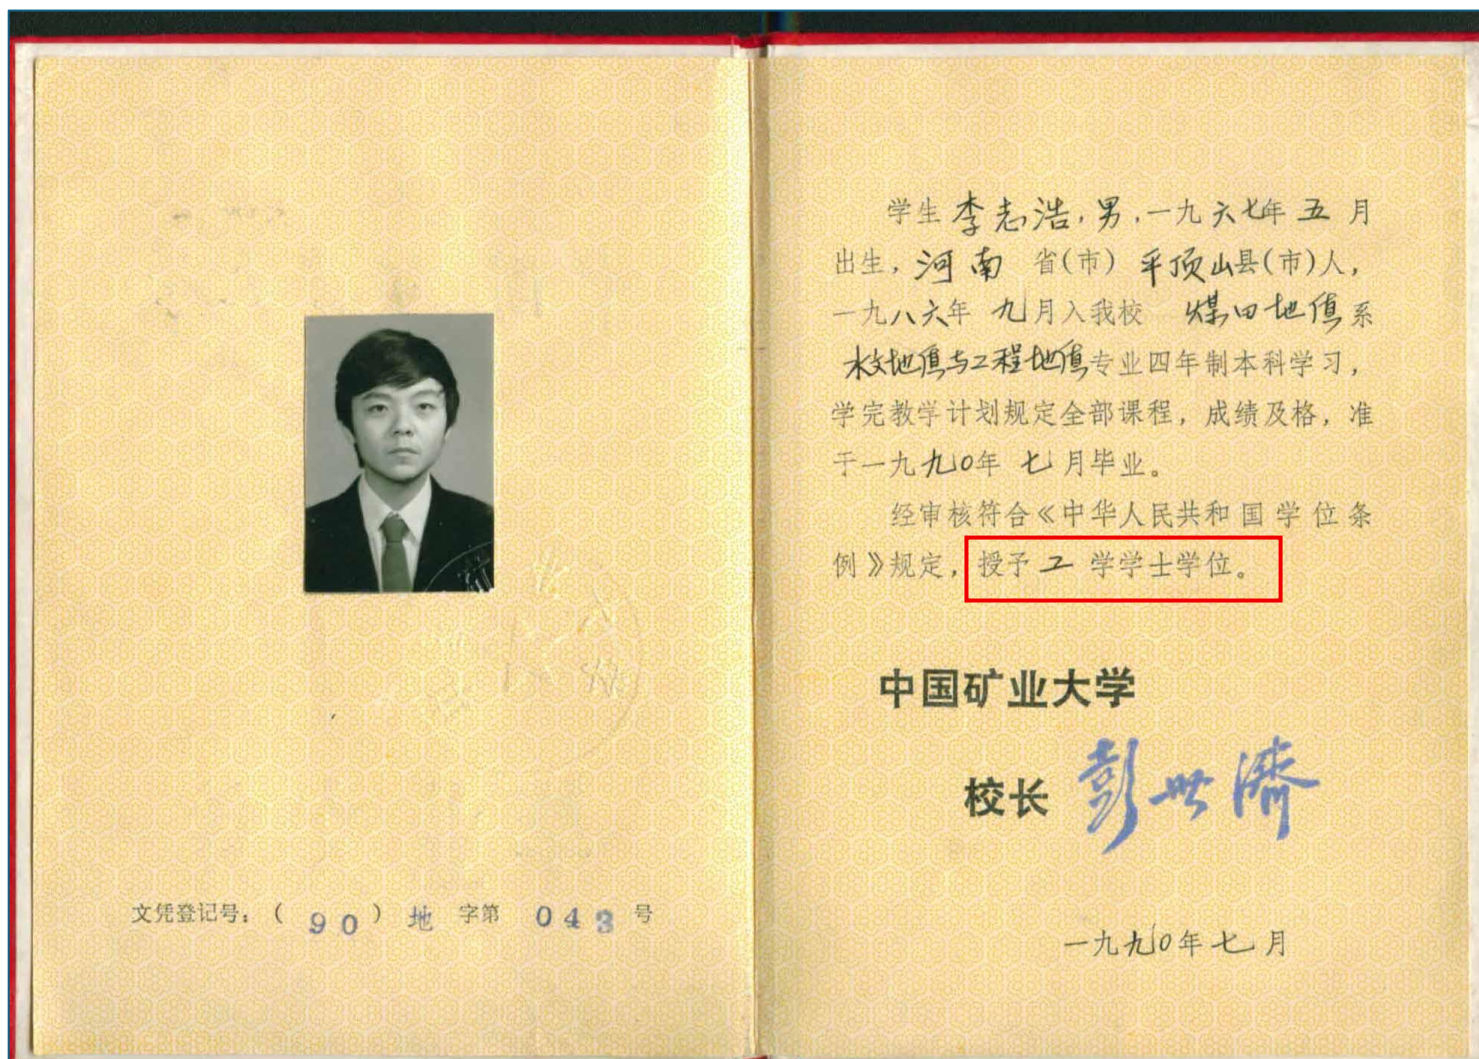 学生 李志浩,男,一九六七年 五 月
出生, 河南 省(市) 平顶山县(市)人,
一九八六年 九月入我校 煤田地质系
水文地质与工程地质专业四年制本科学习,
学完教学计划规定全部课程, 成绩及格, 准
于一九九0年 七月毕业。
经审核符合《中华人民共和国学位条
例》规定, 授予 工 学学士学位。
中国矿业大学
校长 彭世济
一九九0年七月
文凭登记号:( 90 ) 地 字第 043 号